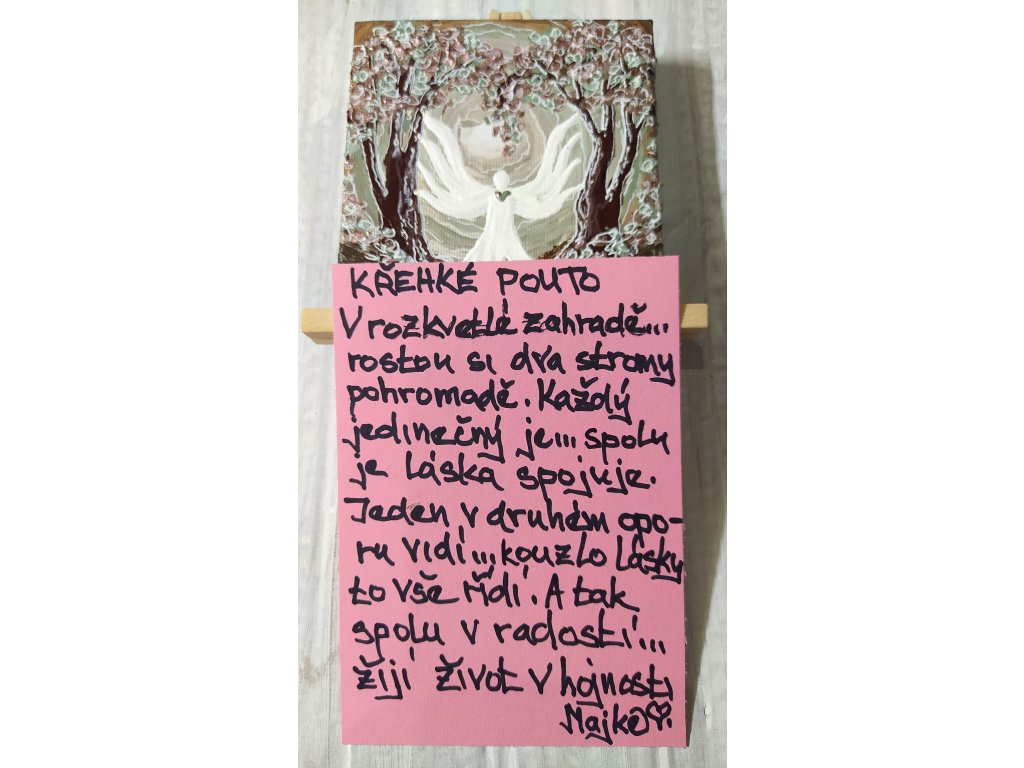 KŘEHKÉ POUTO
V rozkvetlé zahradě...
rostou si dva stromy
pohromadě. Každý
jedinečný je... spolu
je láska spojuje.
Jeden v druhém opo-
ru vidí... kouzlo lásky
to vše řídí. A tak
spolu v radosti...
žijí život v hojnosti
Majka